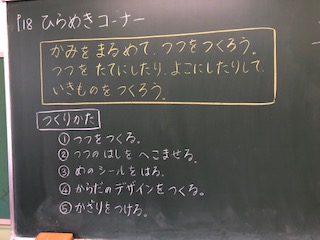 P18 ひらめきコーナー
かみをまるめて、つつをつくろう。
つつをたてにしたり、よこにしたりして、
いきものをつくろう。
つくりかた
①つつをつくる。
②つつのはしをへこませる。
③めのシールをはる。
④からだのデザインをつくる。
⑤かざりをつける。